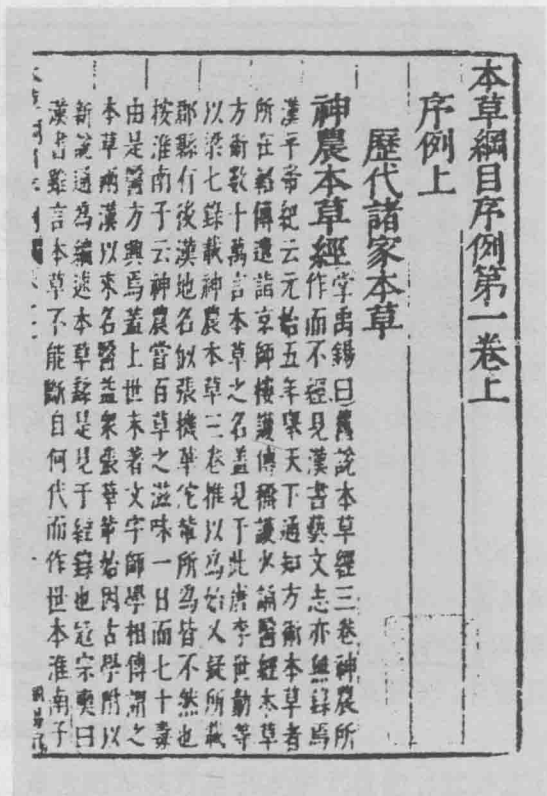 本草綱目序例第一卷上
序例上
歷代諸家本草
神農本草經 掌禹錫曰舊說本草經三卷神農所
作而不經見漢書藝文志亦無錄焉
漢平帝紀云元始五年舉天下通知方術本草者
所在軺傳遣詣京師樓護傳稱護少誦醫經本草
方術數十萬言本草之名蓋見于此唐李世勣等
以梁七錄載神農本草三卷推以爲始又疑所載
郡縣有後漢地名似張機華佗輩所爲皆不然也
按淮南子云神農嘗百草之滋味一日而七十毒
由是醫方興焉蓋上世未著文字師學相傳謂之
本草兩漢以來名醫益衆張華輩始因古學附以
新說通爲編述本草繇是見于經錄也寇宗奭曰
漢書雖言本草不能斷自何代而作世本淮南子